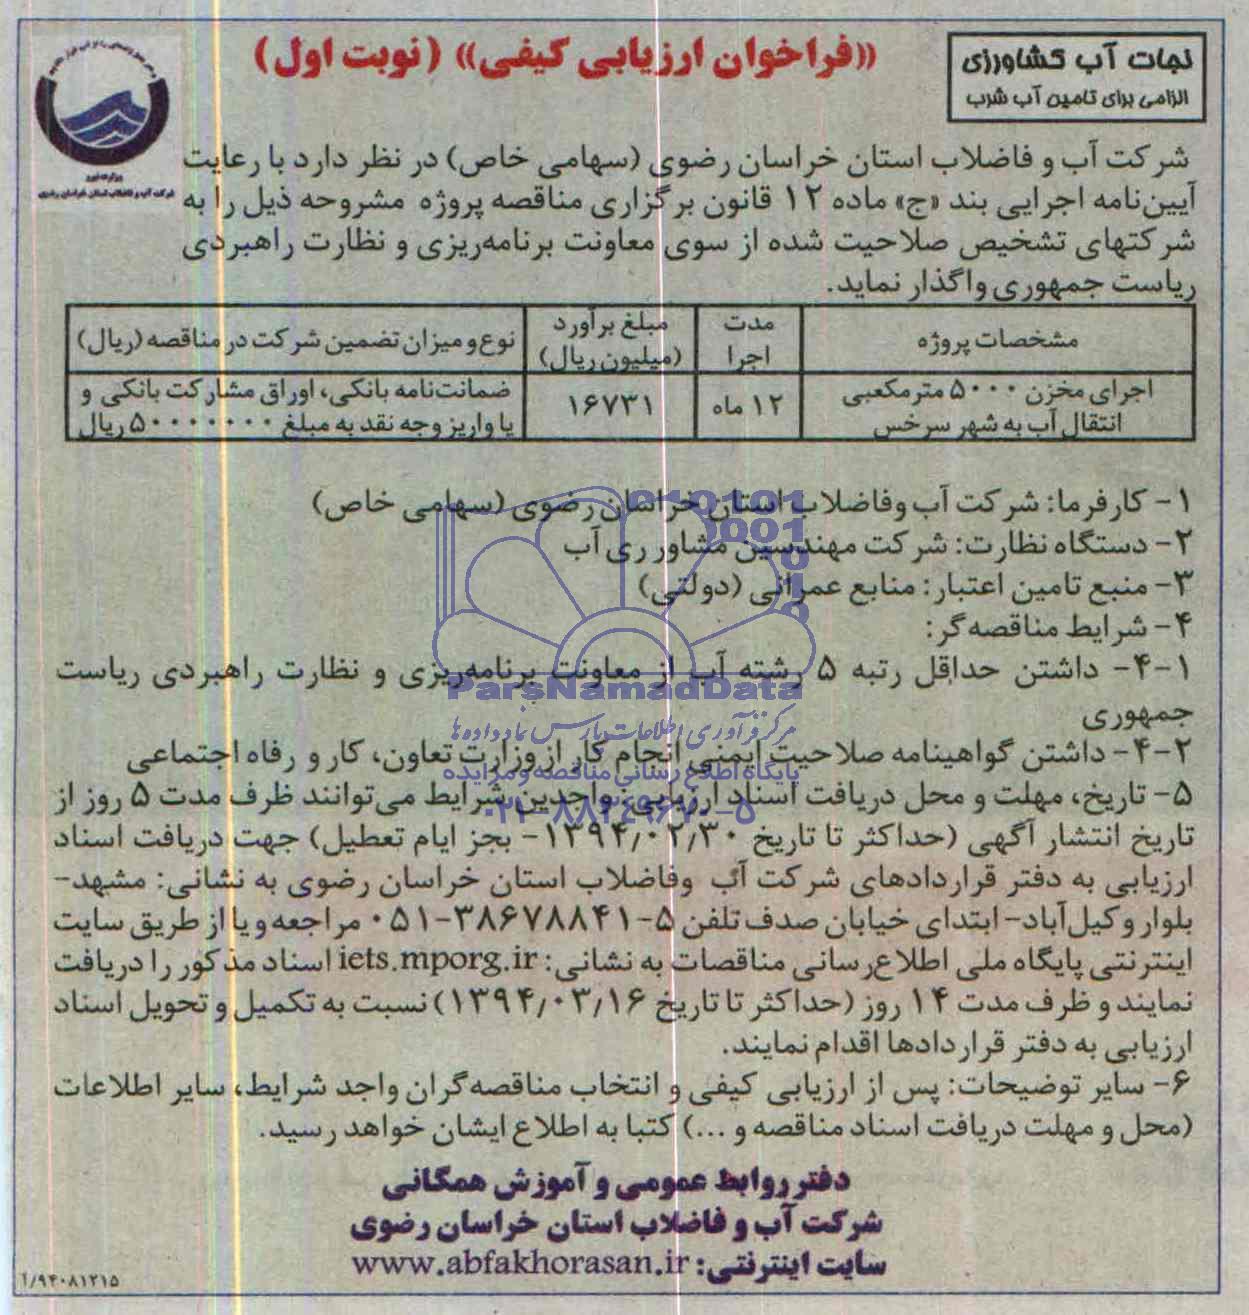 «فراخوان ارزیابی کیفی» (نوبت اول)
نجات آب کشاورزی
الزامی برای تامین آب شرب
وزارت نیرو
شرکت آب و فاضلاب استان خراسان رضوی
شرکت آب و فاضلاب استان خراسان رضوی (سهامی خاص) در نظر دارد با رعایت
آیین‌نامه اجرایی بند «ج» ماده ۱۲ قانون برگزاری مناقصه پروژه مشروحه ذیل را به
شرکتهای تشخیص صلاحیت شده از سوی معاونت برنامه‌ریزی و نظارت راهبردی
ریاست جمهوری واگذار نماید.
مشخصات پروژه
مدت اجرا
مبلغ برآورد (میلیون ریال)
نوع و میزان تضمین شرکت در مناقصه (ریال)
اجرای مخزن ۵۰۰۰ مترمکعبی
انتقال آب به شهر سرخس
۱۲ ماه
۱۶۷۳۱
ضمانت‌نامه بانکی، اوراق مشارکت بانکی و
یا واریز وجه نقد به مبلغ ۵۰۰۰۰۰۰۰۰ ریال
۱- کارفرما: شرکت آب وفاضلاب استان خراسان رضوی (سهامی خاص)
۲- دستگاه نظارت: شرکت مهندسین مشاور ری آب
۳- منبع تامین اعتبار: منابع عمرانی (دولتی)
۴- شرایط مناقصه‌گر:
۴-۱- داشتن حداقل رتبه ۵ رشته آب از معاونت برنامه‌ریزی و نظارت راهبردی ریاست
جمهوری
۴-۲- داشتن گواهینامه صلاحیت ایمنی انجام کار از وزارت تعاون، کار و رفاه اجتماعی
۵- تاریخ، مهلت و محل دریافت اسناد ارزیابی: واجدین شرایط می‌توانند ظرف مدت ۵ روز از
تاریخ انتشار آگهی (حداکثر تا تاریخ ۱۳۹۴/۰۲/۳۰- بجز ایام تعطیل) جهت دریافت اسناد
ارزیابی به دفتر قراردادهای شرکت آب وفاضلاب استان خراسان رضوی به نشانی: مشهد-
بلوار وکیل‌آباد- ابتدای خیابان صدف تلفن ۵-۳۸۶۷۸۸۴۱-۰۵۱ مراجعه و یا از طریق سایت
اینترنتی پایگاه ملی اطلاع‌رسانی مناقصات به نشانی: iets.mporg.ir اسناد مذکور را دریافت
نمایند و ظرف مدت ۱۴ روز (حداکثر تا تاریخ ۱۳۹۴/۰۳/۱۶) نسبت به تکمیل و تحویل اسناد
ارزیابی به دفتر قراردادها اقدام نمایند.
۶- سایر توضیحات: پس از ارزیابی کیفی و انتخاب مناقصه‌گران واجد شرایط، سایر اطلاعات
(محل و مهلت دریافت اسناد مناقصه و ...) کتبا به اطلاع ایشان خواهد رسید.
دفتر روابط عمومی و آموزش همگانی
شرکت آب و فاضلاب استان خراسان رضوی
سایت اینترنتی: www.abfakhorasan.ir
۹۴۰۸۱۲۱۵/آ
ParsNamadData
مرکز فرآوری اطلاعات پارس نماد داده‌ها
پایگاه اطلاع رسانی مناقصه و مزایده
۰۲۱-۸۸۳۴۹۶۷۰-۵